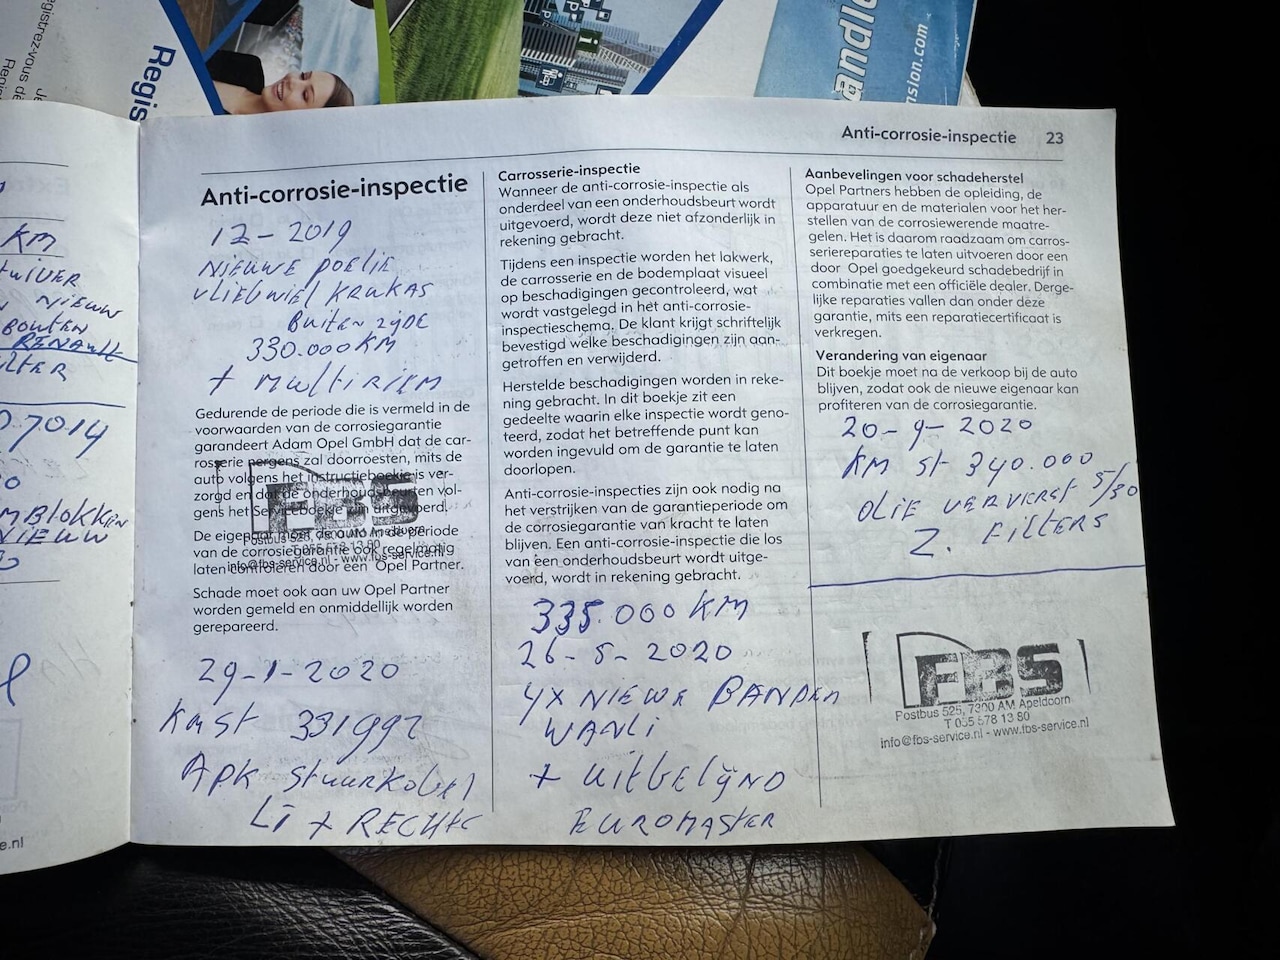 Regis
andle
nsion.com
Anti-corrosie-inspectie 23
KM
NIEUW
BOUTEN
RENAULT
Anti-corrosie-inspectie
12-2019
NIEUWE POELIE
VLIEGWIEL KRUKAS
BUITEN ZIJDE
330.000 KM
+ MULTIRIEM
Gedurende de periode die is vermeld in de
voorwaarden van de corrosiegarantie
garandeert Adam Opel GmbH dat de car-
rosserie nergens zal doorroesten, mits de
auto volgens het instructieboekje is ver-
zorgd en dat de onderhoudsbeurten vol-
gens het Serviceboekje zijn uitgevoerd.
De eigenaar moet de auto in de periode
van de corrosiegarantie ook regelmatig
laten controleren door een Opel Partner.
FBS
Postbus 525, 7300 AM Apeldoorn
T 055 578 13 80
info@fbs-service.nl - www.fbs-service.nl
Schade moet ook aan uw Opel Partner
worden gemeld en onmiddellijk worden
gerepareerd.
29-1-2020
KM St 331992
APK Stuurkogel
LI + RECHTS
Carrosserie-inspectie
Wanneer de anti-corrosie-inspectie als
onderdeel van een onderhoudsbeurt wordt
uitgevoerd, wordt deze niet afzonderlijk in
rekening gebracht.
Tijdens een inspectie worden het lakwerk,
de carrosserie en de bodemplaat visueel
op beschadigingen gecontroleerd, wat
wordt vastgelegd in het anti-corrosie-
inspectieschema. De klant krijgt schriftelijk
bevestigd welke beschadigingen zijn aan-
getroffen en verwijderd.
Herstelde beschadigingen worden in reke-
ning gebracht. In dit boekje zit een
gedeelte waarin elke inspectie wordt geno-
teerd, zodat het betreffende punt kan
worden ingevuld om de garantie te laten
doorlopen.
Anti-corrosie-inspecties zijn ook nodig na
het verstrijken van de garantieperiode om
de corrosiegarantie van kracht te laten
blijven. Een anti-corrosie-inspectie die los
van een onderhoudsbeurt wordt uitge-
voerd, wordt in rekening gebracht.
335.000 KM
26-5-2020
4X NIEWE BANDEN
WANLI
+ UITGELIJND
EUROMASTER
Aanbevelingen voor schadeherstel
Opel Partners hebben de opleiding, de
apparatuur en de materialen voor het her-
stellen van de corrosiewerende maatre-
gelen. Het is daarom raadzaam om carros-
seriereparaties te laten uitvoeren door een
door Opel goedgekeurd schadebedrijf in
combinatie met een officiële dealer. Derge-
lijke reparaties vallen dan onder deze
garantie, mits een reparatiecertificaat is
verkregen.
Verandering van eigenaar
Dit boekje moet na de verkoop bij de auto
blijven, zodat ook de nieuwe eigenaar kan
profiteren van de corrosiegarantie.
20-9-2020
KM St 340.000
OLIE VERVERST 5/30
2. FILTERS
FBS
Postbus 525, 7300 AM Apeldoorn
T 055 578 13 80
info@fbs-service.nl - www.fbs-service.nl